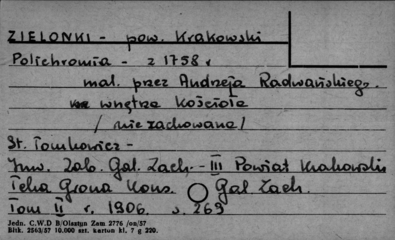 ZIELONKI - pow. Krakowski
Polichromia - z 1758 r
mal. przez Andrzeja Radwańskiego.
we wnętrzu Kościoła
/ nie zachowana /
St. Tomkowicz -
Inw. Zab. Gal. Zach. - III Powiat Krakowski
Teka Grona Kons. Gal. Zach.
Tom II r. 1906. s. 269
Jedn. C.W.D B/Olsztyn Zam 2776 /on/57
Błtk. 2563/57 10.000 szt. karton kl. 7 g 220.